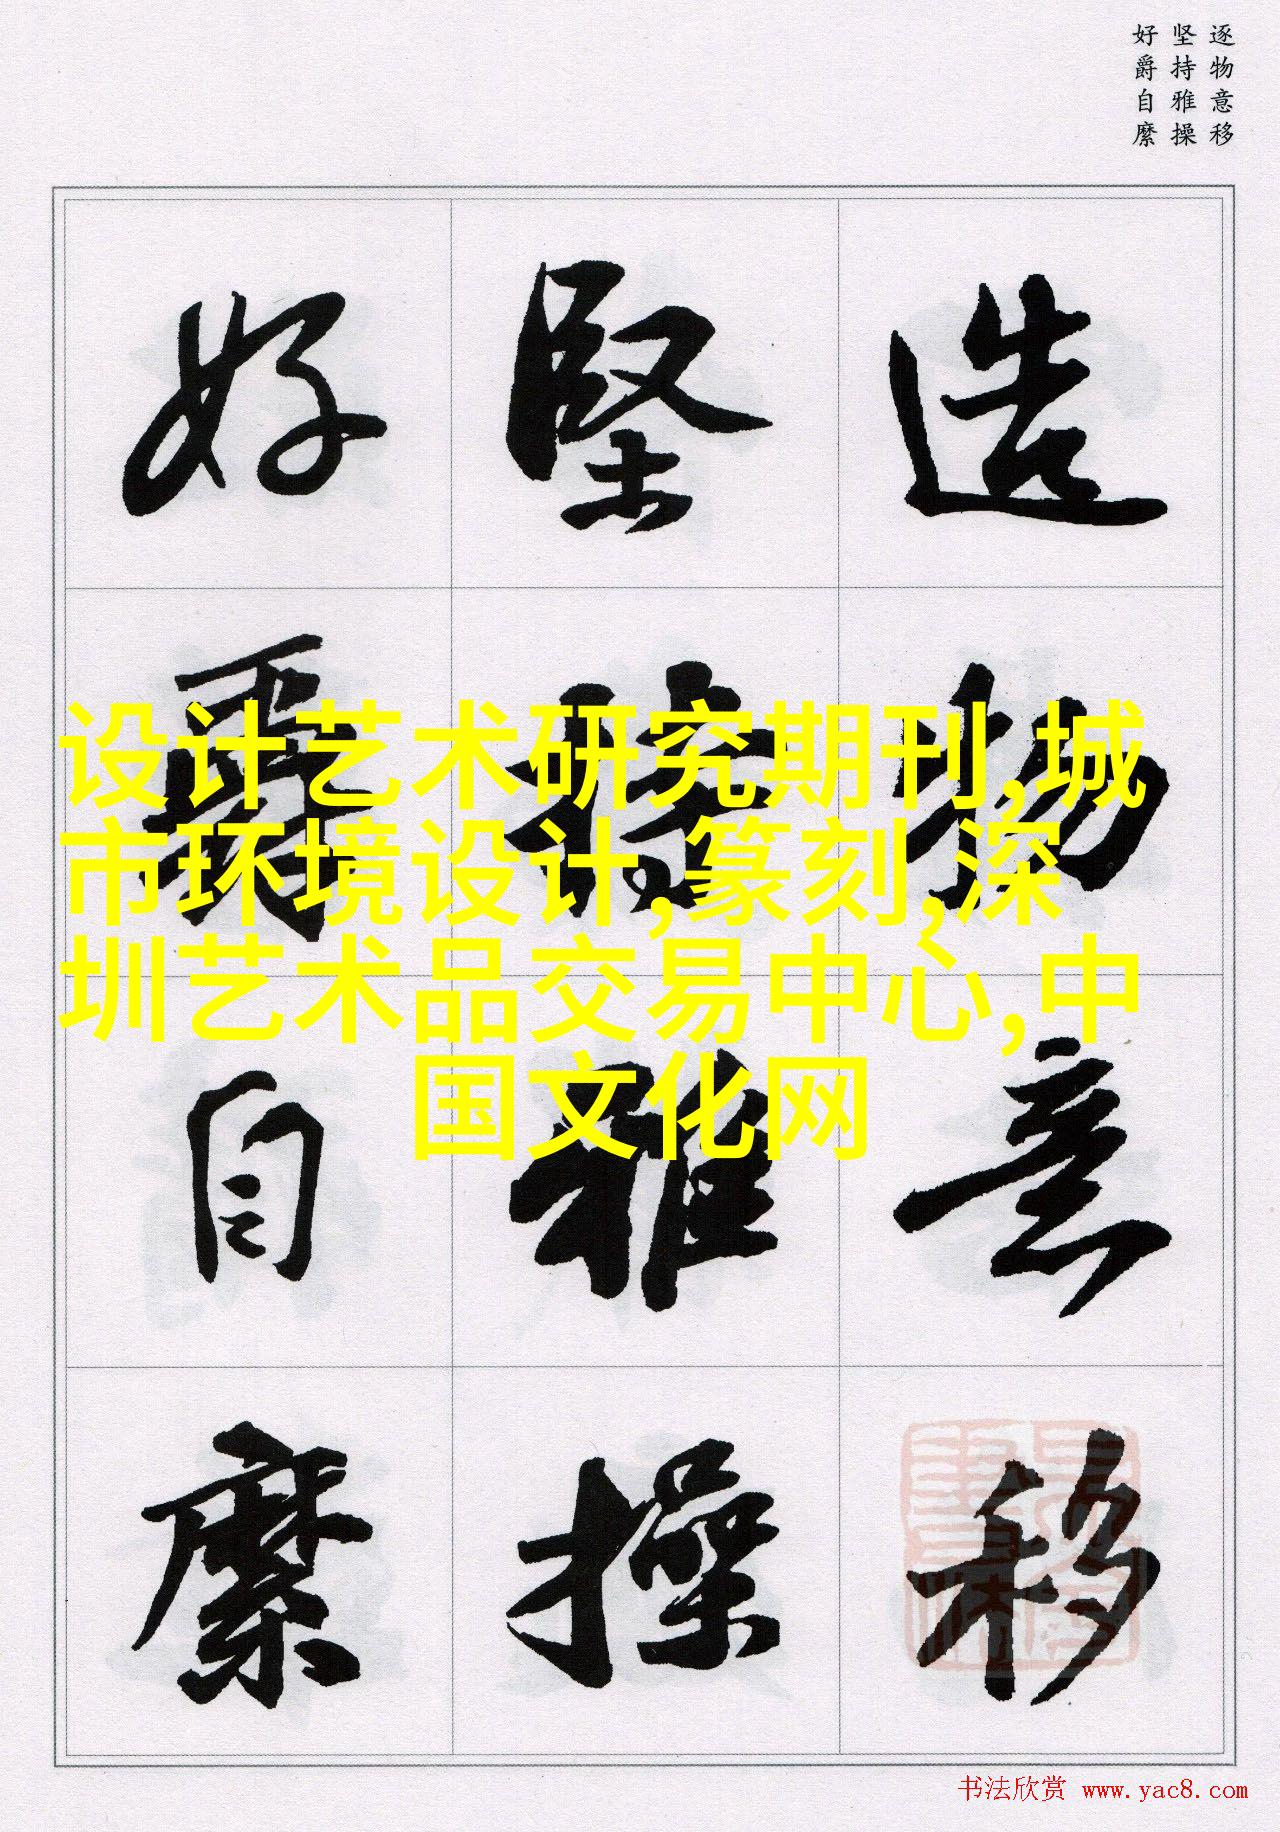 逐物意移
坚持雅操
好爵自縻
造物意移
堅持雅操
好爵自縻
设计艺术研究期刊,城
市环境设计,篆刻,深
圳艺术品交易中心,中
国文化网
书法欣赏 www.yac8.com